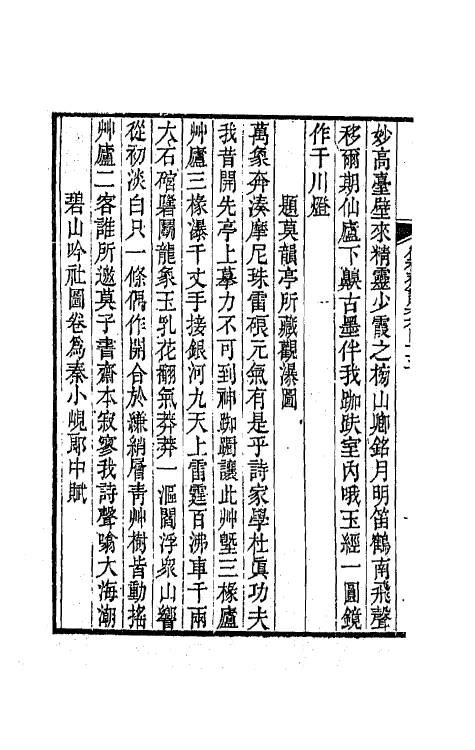 妙高臺壁來精靈少霞之榜山鄉銘月明笛鶴南飛聲
移爾期仙廬下鼻古墨伴我跏趺室內哦玉經一圓鏡
作千川燈
題莫韻亭所藏觀瀑圖
萬象奔湊摩尼珠雷硠元氣有是乎詩家學杜眞功夫
我昔開先亭上摹力不可到神踟躕讓此艸堅三椽廬
艸廬三椽瀑千丈手接銀河九天上雷霆百沸車千兩
大石硿礱鬭龍象玉乳花翻氣莽莽一漚閻浮衆山響
從初淡白只一條偶作開合於縑綃層靑艸樹皆動搖
艸廬二客誰所邀莫子書齋本寂寥我詩聲噏大海潮
碧山吟社圖卷爲秦小峴郞中賦